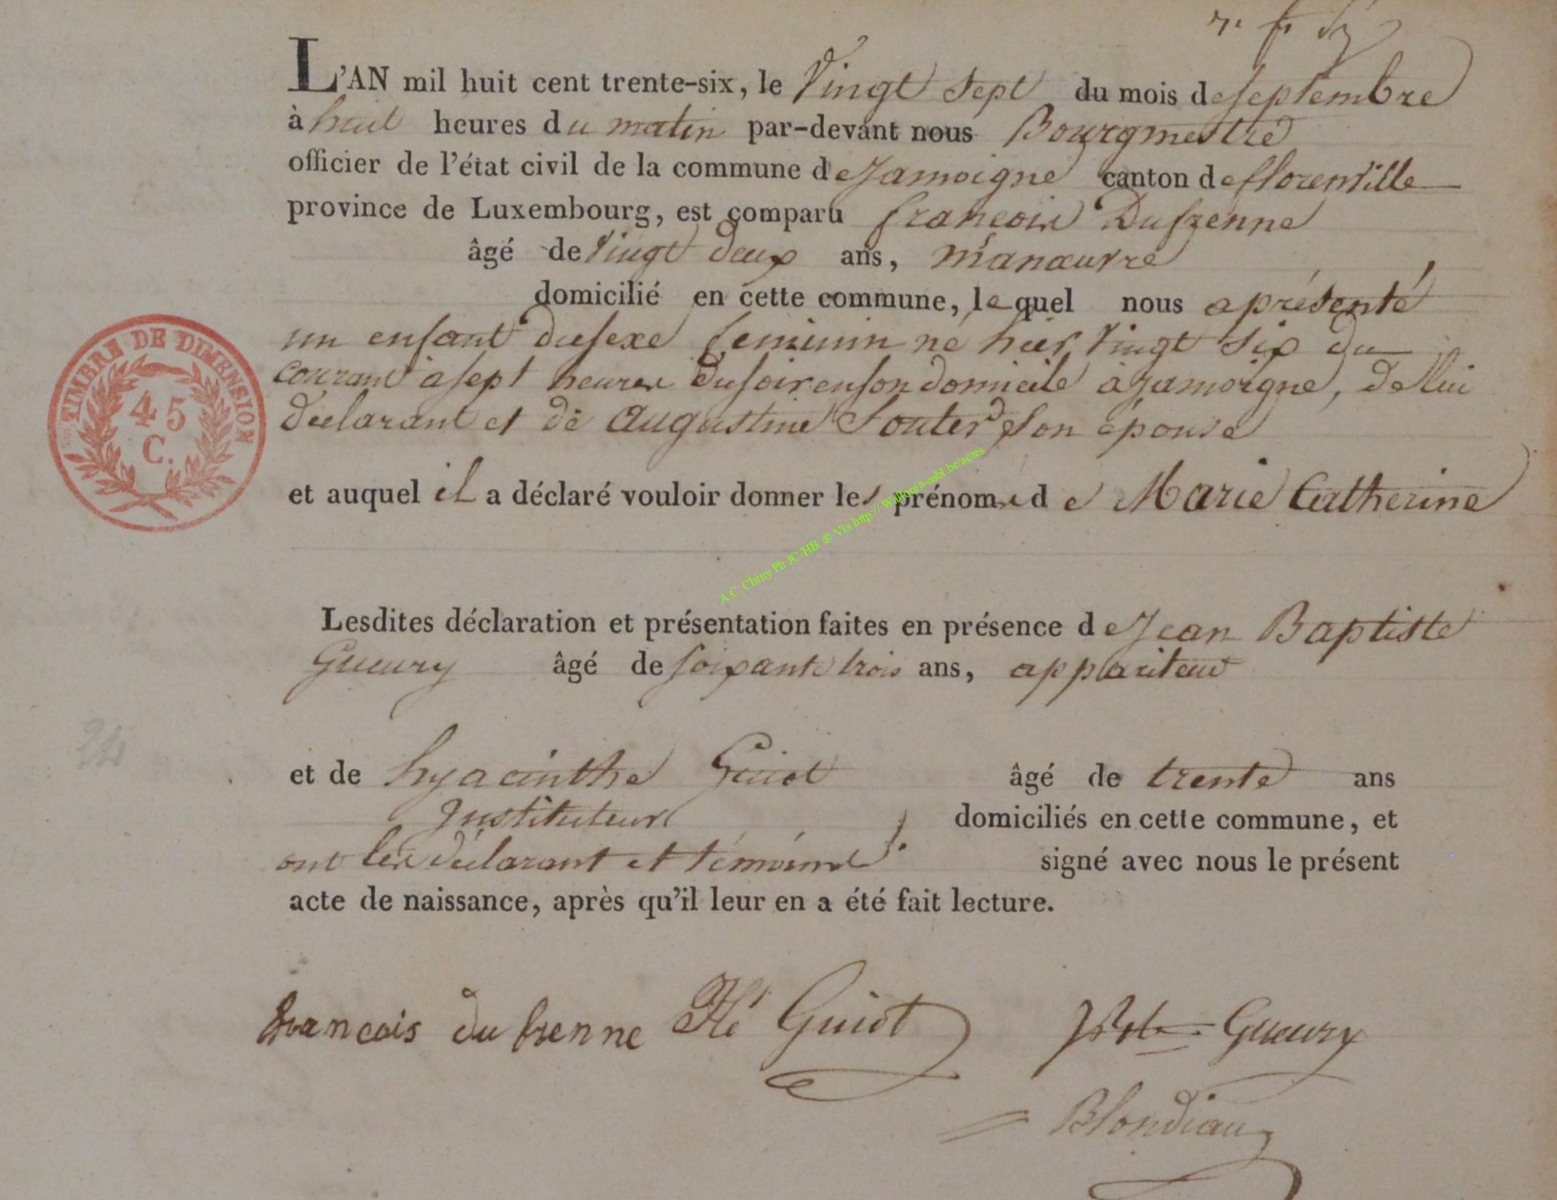 L'AN mil huit cent trente-six, le Vingt sept du mois de septembre
à huit heures du matin par-devant nous Bourgmestre
officier de l'état civil de la commune de Jamoigne canton de florenville
province de Luxembourg, est comparu francois Dufrenne
âgé de Vingt deux ans, manœuvre
domicilié en cette commune, lequel nous a présenté
un enfant du sexe feminin né hier Vingt six du
courant a sept heures du soir en son domicile à Jamoigne, de lui
déclarant et de Augustine son épouse
et auquel il a déclaré vouloir donner les prénoms de Marie Catherine
Lesdites déclaration et présentation faites en présence de Jean Baptiste
Gueury âgé de soixante trois ans, appariteur
et de hyacinthe Guiot âgé de trente ans
Instituteur domiciliés en cette commune, et
ont les déclarant et témoins signé avec nous le présent
acte de naissance, après qu'il leur en a été fait lecture.
francois du frenne Hte Guiot JBte Gueury
Blondiau
TIMBRE DE DIMENSION
45
C.
A.C. Chiny Ph JC HB & Via http:// Wallonia-asbl.be/actes